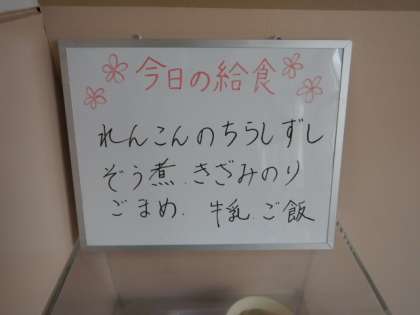 今日の給食
れんこんのちらしずし
ぞう煮.きざみのり
ごまめ.牛乳.ご飯